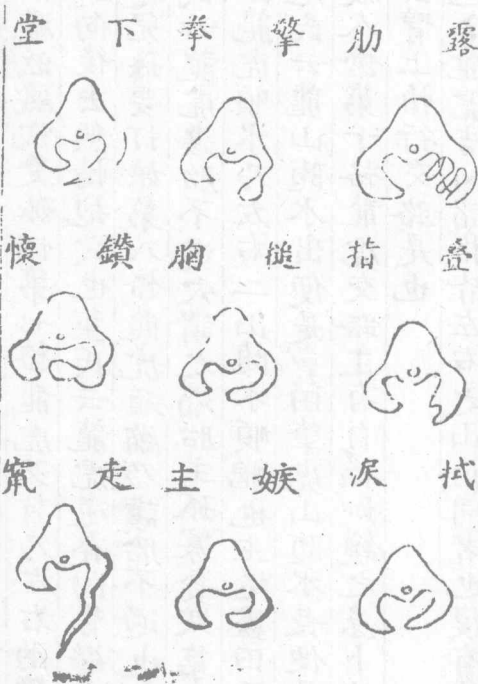 露肋 擎拳 下堂
叠指 搥胸 鑽懷
拭淚 嫉主 走竄